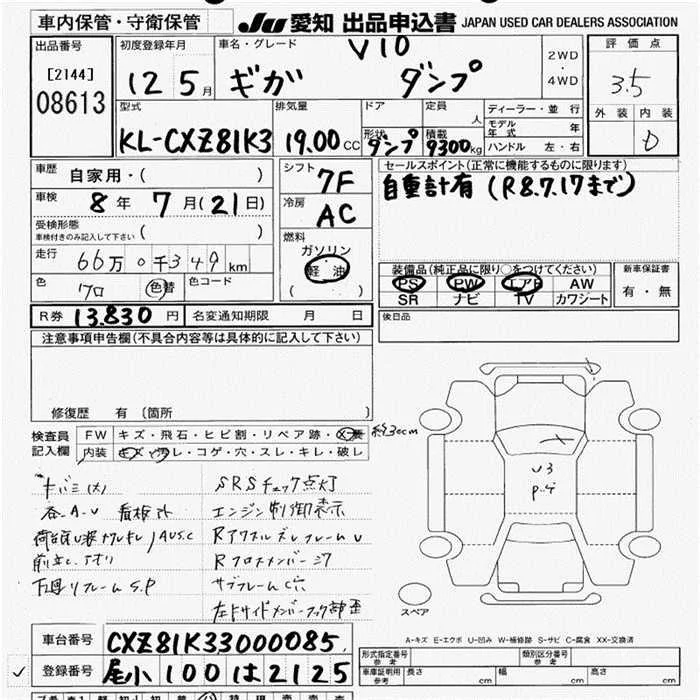 車内保管・守衛保管
JU 愛知 出品申込書 JAPAN USED CAR DEALERS ASSOCIATION
出品番号
[2144]
08613
初度登録年月
12 5月
車名・グレード
V10
ギガ ダンプ
2WD
・
4WD
評価点
3.5
外装 内装
D
型式
KL-CXZ81K3
排気量
19.00 CC
ドア
形状 ダンプ
定員
人
積載 9300kg
ディーラー・並行
モデル年式 年
ハンドル 左・右
車歴 自家用・( )
車検 8年 7月(21日)
受検形態
車検付きのみ記入して下さい ( )
走行 66万0千349km
色 クロ 色替 色コード
シフト 7F
冷房 AC
燃料
ガソリン
軽油
( )
セールスポイント(正常に機能するものに限ります)
自重計有 (R8.7.17まで)
装備品(純正品に限り○をつけてください)
PS PW エアB AW
SR ナビ TV カワシート
新車保証書
有・無
R券 13.830円 名変通知期限 月 日
後日品
注意事項申告欄(不具合内容等は具体的に記入して下さい)
修復歴 有 〔箇所 〕
検査員
記入欄
FW キズ・飛石・ヒビ割・リペア跡・X要 約30cm
内装 キズ・汚レ・コゲ・穴・スレ・キレ・破レ
キバミ(大)
各A-U
SRSチェック点灯
エンジン制御表示
下廻り
S.P
U3
P-4
スペア
A-キズ E-エクボ U-凹み W-補修跡 S-サビ C-腐食 XX-交換済
車台番号 CXZ81K33000085
登録番号 尾小 100 は 2125
形式指定番号
参考
類別区分番号
参考
車庫証明用
参考
長さ cm 幅 cm 高さ cm